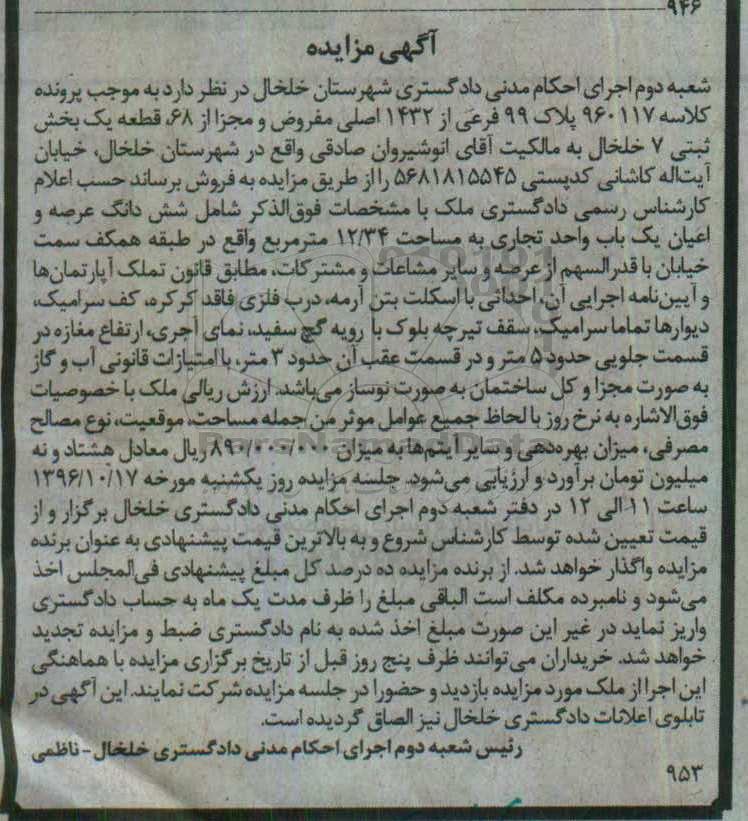 ۹۴۶
آگهی مزایده
شعبه دوم اجرای احکام مدنی دادگستری شهرستان خلخال در نظر دارد به موجب پرونده
کلاسه ۹۶۰۱۱۷ پلاک ۹۹ فرعی از ۱۴۳۲ اصلی مفروض و مجزا از ۶۸، قطعه یک بخش
ثبتی ۷ خلخال به مالکیت آقای انوشیروان صادقی واقع در شهرستان خلخال، خیابان
آیت‌اله کاشانی کدپستی ۵۶۸۱۸۱۵۵۴۵ را از طریق مزایده به فروش برساند حسب اعلام
کارشناس رسمی دادگستری ملک با مشخصات فوق‌الذکر شامل شش دانگ عرصه و
اعیان یک باب واحد تجاری به مساحت ۱۲/۳۴ مترمربع واقع در طبقه همکف سمت
خیابان با قدرالسهم از عرصه و سایر مشاعات و مشترکات، مطابق قانون تملک آپارتمان‌ها
و آیین‌نامه اجرایی آن، احداثی با اسکلت بتن آرمه، درب فلزی فاقد کرکره، کف سرامیک،
دیوارها تماما سرامیک، سقف تیرچه بلوک با رویه گچ سفید، نمای آجری، ارتفاع مغازه در
قسمت جلویی حدود ۵ متر و در قسمت عقب آن حدود ۳ متر، با امتیازات قانونی آب و گاز
به صورت مجزا و کل ساختمان به صورت نوساز می‌باشد. ارزش ریالی ملک با خصوصیات
فوق‌الاشاره به نرخ روز با لحاظ جمیع عوامل موثر من جمله مساحت، موقعیت، نوع مصالح
مصرفی، میزان بهره‌دهی و سایر ایتم‌ها به میزان ۸۹۰/۰۰۰/۰۰۰ ریال معادل هشتاد و نه
میلیون تومان برآورد و ارزیابی می‌شود. جلسه مزایده روز یکشنبه مورخه ۱۳۹۶/۱۰/۱۷
ساعت ۱۱ الی ۱۲ در دفتر شعبه دوم اجرای احکام مدنی دادگستری خلخال برگزار و از
قیمت تعیین شده توسط کارشناس شروع و به بالاترین قیمت پیشنهادی به عنوان برنده
مزایده واگذار خواهد شد. از برنده مزایده ده درصد کل مبلغ پیشنهادی فی‌المجلس اخذ
می‌شود و نامبرده مکلف است الباقی مبلغ را ظرف مدت یک ماه به حساب دادگستری
واریز نماید در غیر این صورت مبلغ اخذ شده به نام دادگستری ضبط و مزایده تجدید
خواهد شد. خریداران می‌توانند ظرف پنج روز قبل از تاریخ برگزاری مزایده با هماهنگی
این اجرا از ملک مورد مزایده بازدید و حضورا در جلسه مزایده شرکت نمایند. این آگهی در
تابلوی اعلانات دادگستری خلخال نیز الصاق گردیده است.
رئیس شعبه دوم اجرای احکام مدنی دادگستری خلخال - ناظمی
۹۵۳
ParsNamadData